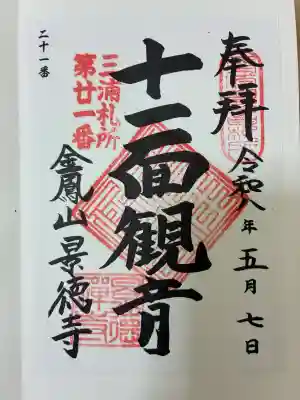 奉拝
令和八年五月七日
十一面観音
三浦札所
第廿一番
金鳳山景徳寺
二十一番